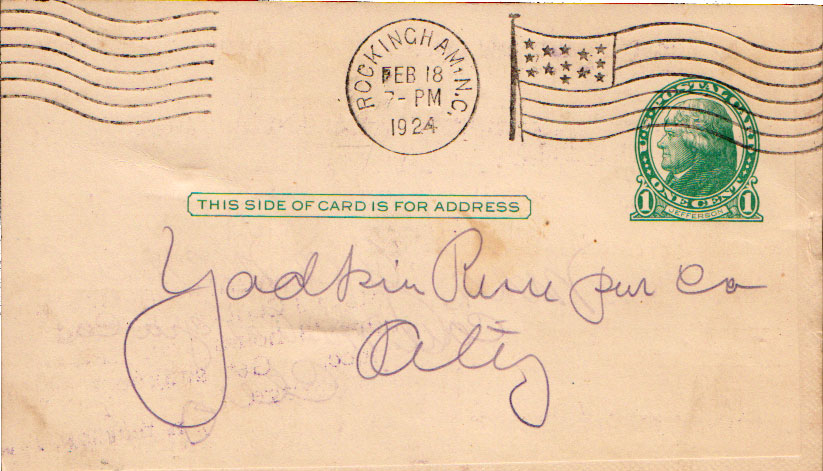 ROCKINGHAM, N.C.
FEB 18
7-PM
1924
U·S·POSTAL CARD
ONE CENT
1 JEFFERSON 1
THIS SIDE OF CARD IS FOR ADDRESS
Yadkin River pwr Co
City